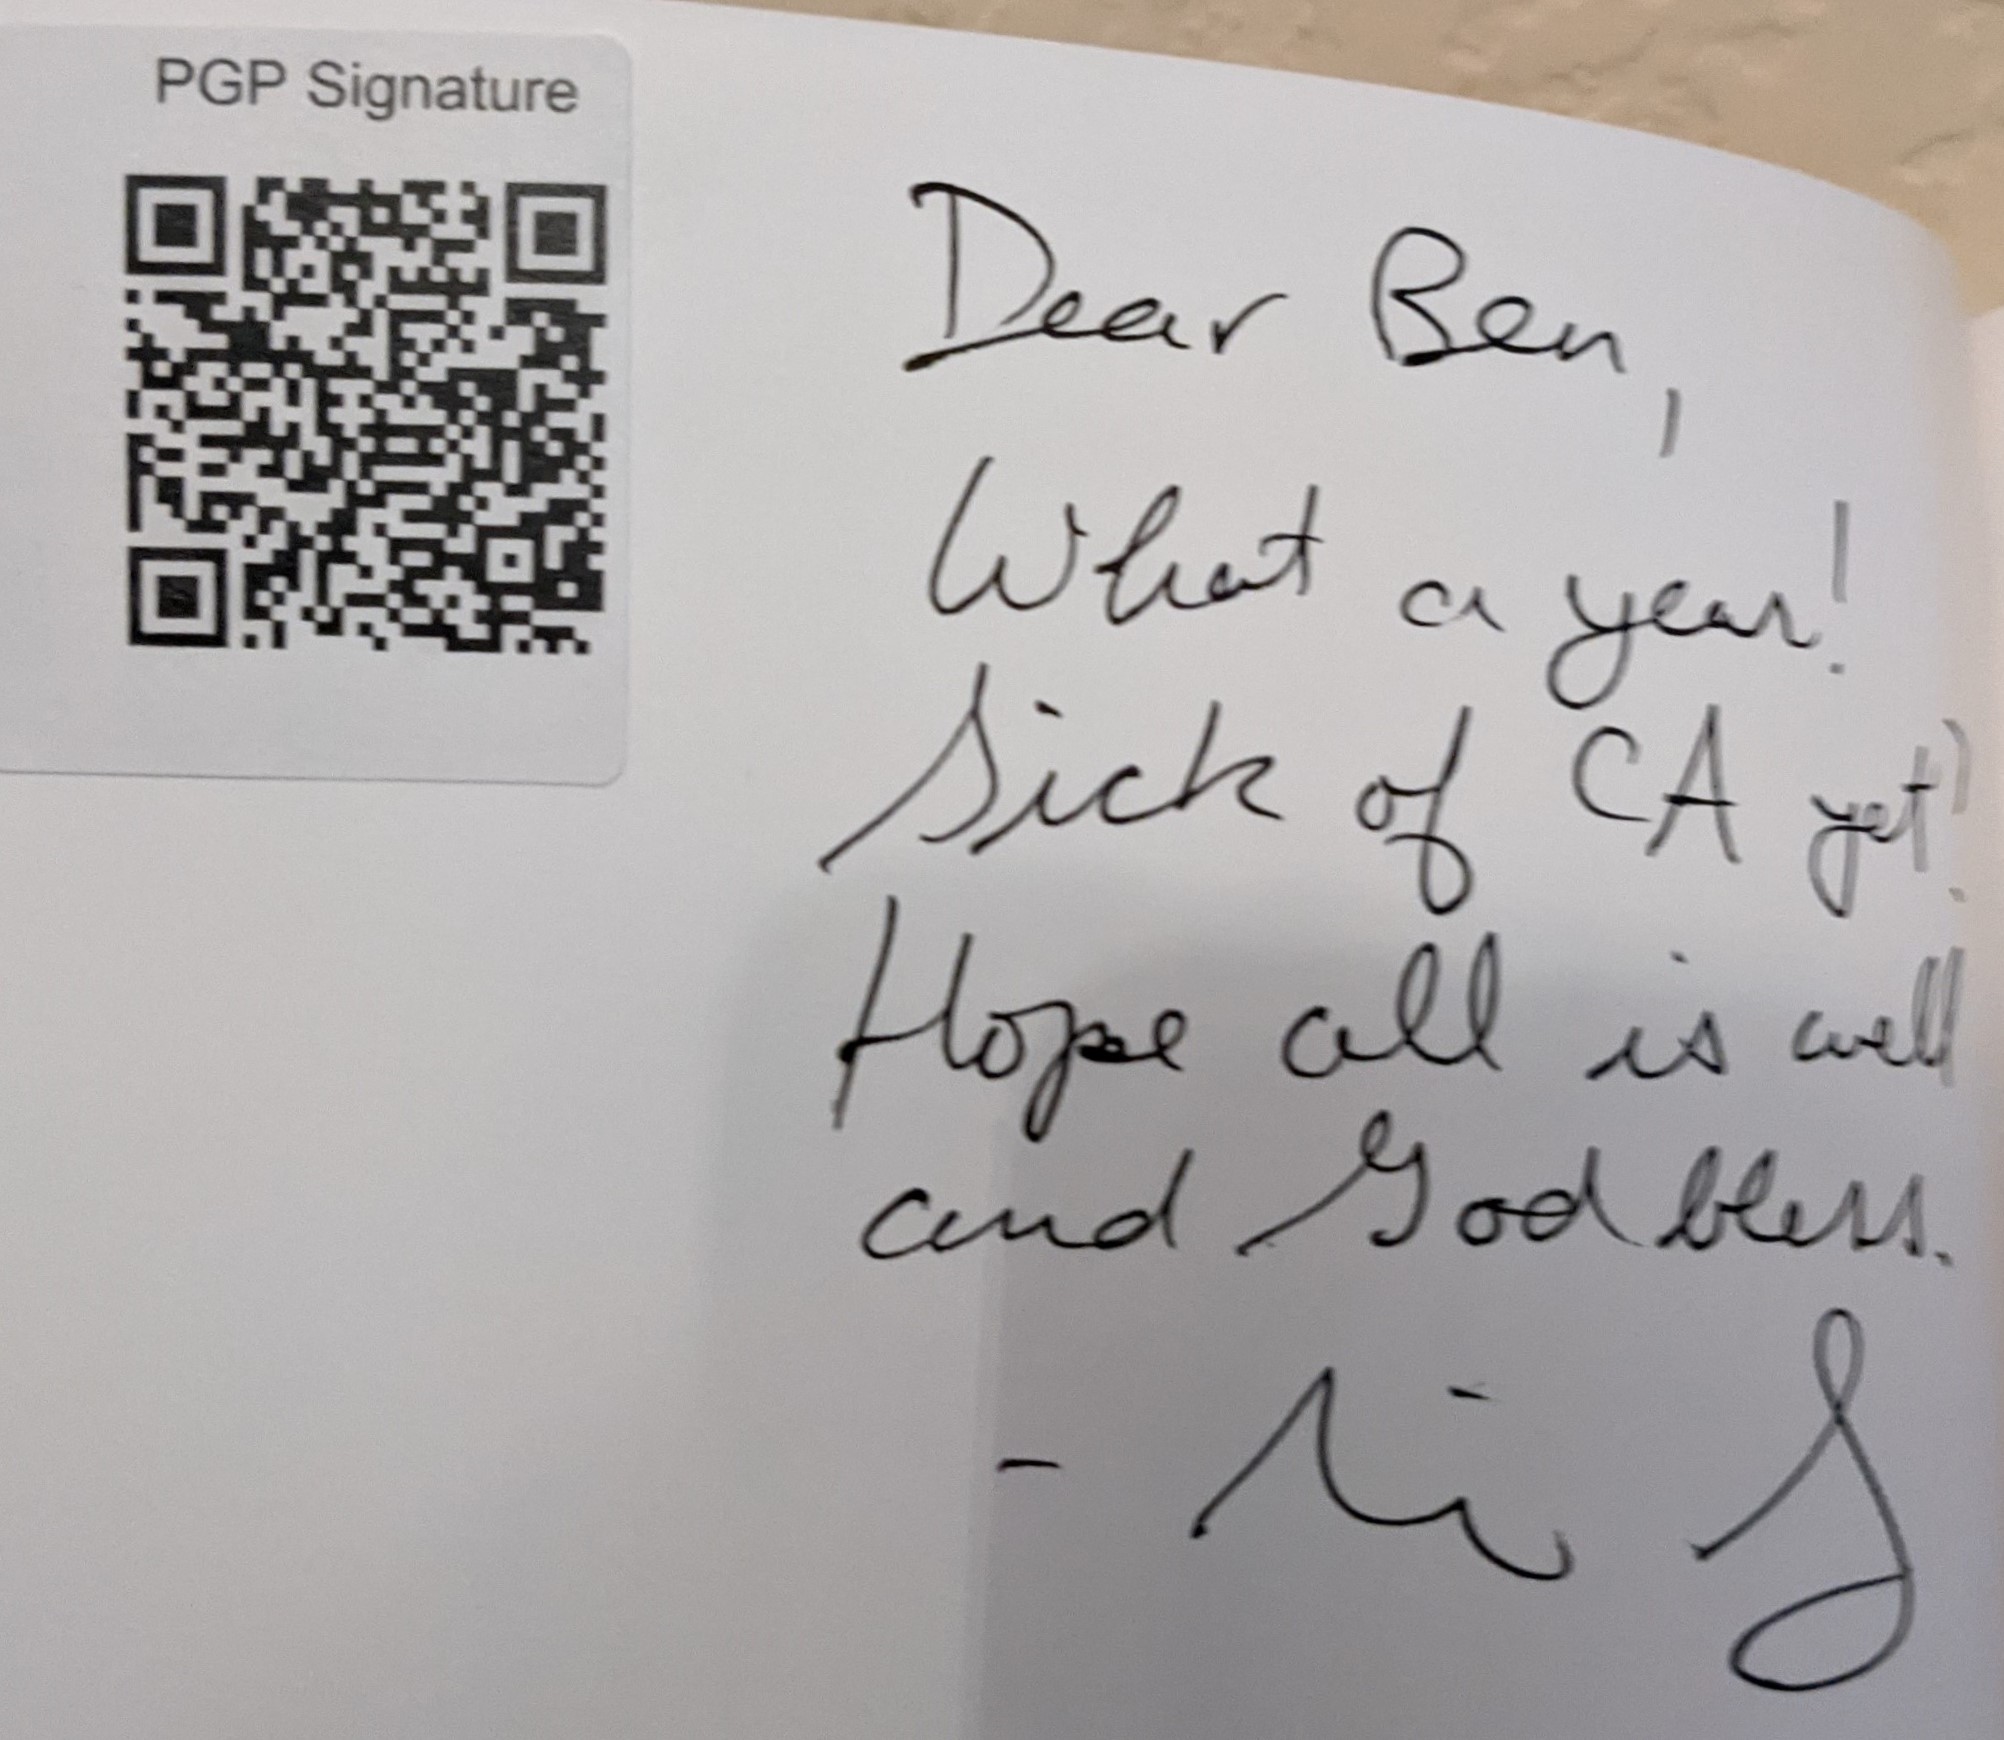 PGP Signature
Dear Ben,
What a year!
Sick of CA yet?
Hope all is well
and God bless.
-